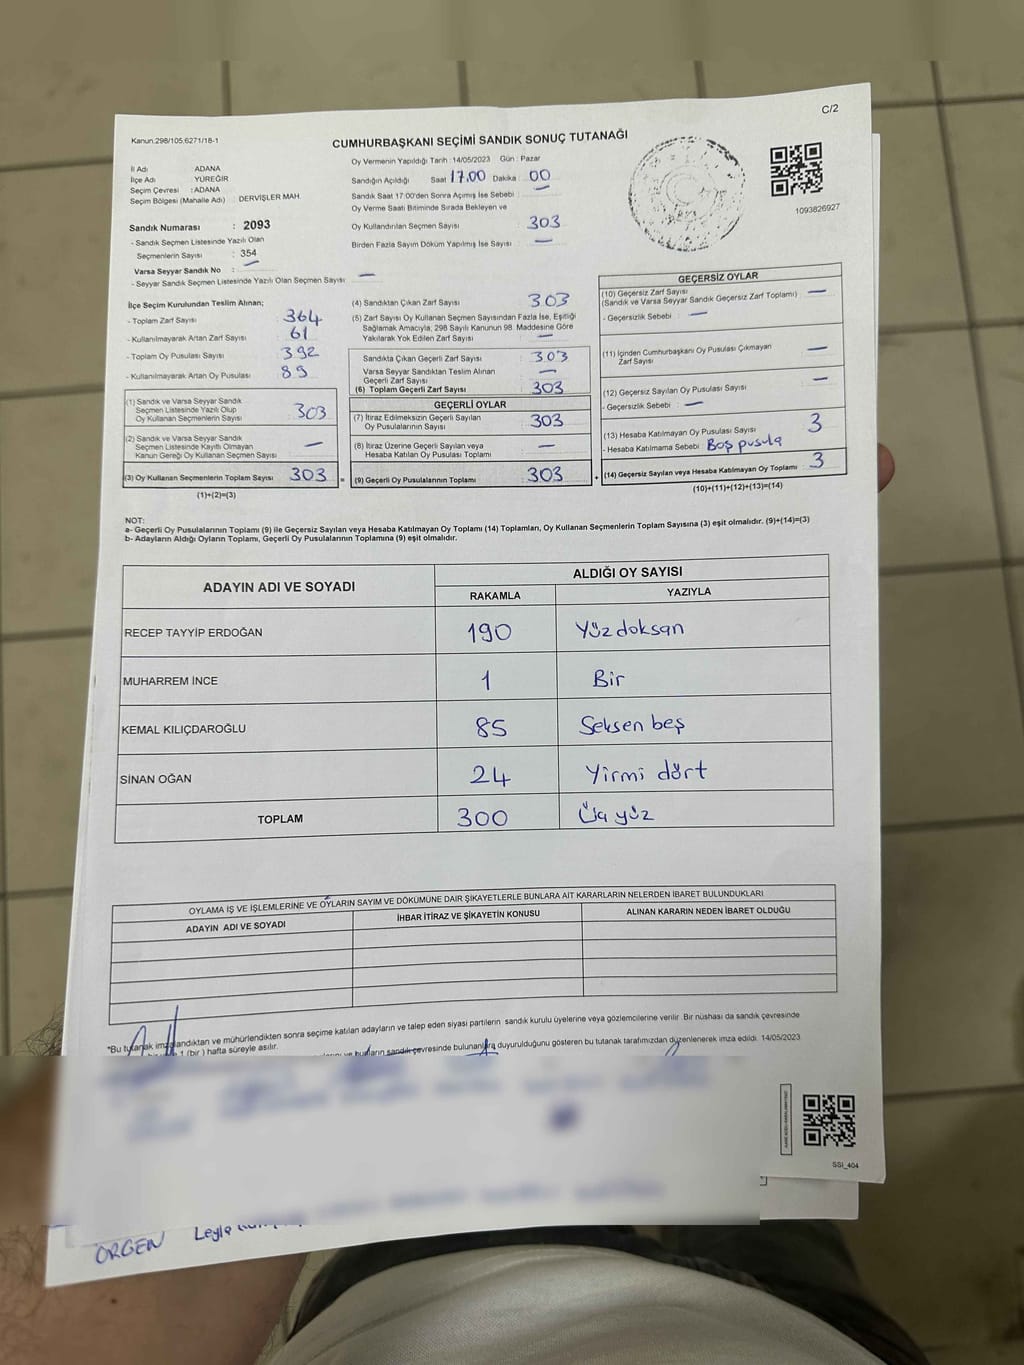 C/2
Kanun.298/105.6271/18-1
CUMHURBAŞKANI SEÇİMİ SANDIK SONUÇ TUTANAĞI
İl Adı ADANA
İlçe Adı YÜREĞİR
Seçim Çevresi : ADANA
Seçim Bölgesi (Mahalle Adı) : DERVİŞLER MAH.
Oy Vermenin Yapıldığı Tarih :14/05/2023 Gün : Pazar
Sandığın Açıldığı Saat 17.00 Dakika 00
Sandık Saat 17:00'den Sonra Açımış İse Sebebi : —
Oy Verme Saati Bitiminde Sırada Bekleyen ve
Oy Kullandırılan Seçmen Sayısı : 303
Birden Fazla Sayım Döküm Yapılmış İse Sayısı : —
1093826927
Sandık Numarası : 2093
- Sandık Seçmen Listesinde Yazılı Olan
Seçmenlerin Sayısı : 354
Varsa Seyyar Sandık No : —
- Seyyar Sandık Seçmen Listesinde Yazılı Olan Seçmen Sayısı : —
İlçe Seçim Kurulundan Teslim Alınan;
- Toplam Zarf Sayısı : 364
- Kullanılmayarak Artan Zarf Sayısı : 61
- Toplam Oy Pusulası Sayısı : 392
- Kullanılmayarak Artan Oy Pusulası : 89
(1) Sandık ve Varsa Seyyar Sandık
Seçmen Listesinde Yazılı Olup
Oy Kullanan Seçmenlerin Sayısı : 303
(2) Sandık ve Varsa Seyyar Sandık
Seçmen Listesinde Kayıtlı Olmayan
Kanun Gereği Oy Kullanan Seçmen Sayısı : —
(3) Oy Kullanan Seçmenlerin Toplam Sayısı : 303 =
(1)+(2)=(3)
(4) Sandıktan Çıkan Zarf Sayısı : 303
(5) Zarf Sayısı Oy Kullanan Seçmen Sayısından Fazla İse, Eşitliği
Sağlamak Amacıyla, 298 Sayılı Kanunun 98. Maddesine Göre
Yakılarak Yok Edilen Zarf Sayısı : —
Sandıkta Çıkan Geçerli Zarf Sayısı : 303
Varsa Seyyar Sandıktan Teslim Alınan
Geçerli Zarf Sayısı : —
(6) Toplam Geçerli Zarf Sayısı : 303
GEÇERLİ OYLAR
(7) İtiraz Edilmeksizin Geçerli Sayılan
Oy Pusulalarının Sayısı : 303
(8) İtiraz Üzerine Geçerli Sayılan veya
Hesaba Katılan Oy Pusulası Toplamı : —
(9) Geçerli Oy Pusulalarının Toplamı : 303 +
GEÇERSİZ OYLAR
(10) Geçersiz Zarf Sayısı : —
(Sandık ve Varsa Seyyar Sandık Geçersiz Zarf Toplamı)
- Geçersizlik Sebebi : —
(11) İçinden Cumhurbaşkanı Oy Pusulası Çıkmayan
Zarf Sayısı : —
(12) Geçersiz Sayılan Oy Pusulası Sayısı : —
- Geçersizlik Sebebi : —
(13) Hesaba Katılmayan Oy Pusulası Sayısı : 3
- Hesaba Katılmama Sebebi : Boş pusula
(14) Geçersiz Sayılan veya Hesaba Katılmayan Oy Toplamı : 3
(10)+(11)+(12)+(13)=(14)
NOT:
a- Geçerli Oy Pusulalarının Toplamı (9) ile Geçersiz Sayılan veya Hesaba Katılmayan Oy Toplamı (14) Toplamları, Oy Kullanan Seçmenlerin Toplam Sayısına (3) eşit olmalıdır. (9)+(14)=(3)
b- Adayların Aldığı Oyların Toplamı, Geçerli Oy Pusulalarının Toplamına (9) eşit olmalıdır.
ADAYIN ADI VE SOYADI ALDIĞI OY SAYISI
RAKAMLA YAZIYLA
RECEP TAYYİP ERDOĞAN 190 Yüz doksan
MUHARREM İNCE 1 Bir
KEMAL KILIÇDAROĞLU 85 Seksen beş
SİNAN OĞAN 24 Yirmi dört
TOPLAM 300 Üç yüz
OYLAMA İŞ VE İŞLEMLERİNE VE OYLARIN SAYIM VE DÖKÜMÜNE DAİR ŞİKAYETLERLE BUNLARA AİT KARARLARIN NELERDEN İBARET BULUNDUKLARI
ADAYIN ADI VE SOYADI İHBAR İTİRAZ VE ŞİKAYETİN KONUSU ALINAN KARARIN NEDEN İBARET OLDUĞU
*Bu tutanak imzalandıktan ve mühürlendikten sonra seçime katılan adayların ve talep eden siyasi partilerin sandık kurulu üyelerine veya gözlemcilerine verilir. Bir nüshası da sandık çevresinde
1 (bir) hafta süreyle asılır.
ve bunların sandık çevresinde bulunanlara duyurulduğunu gösteren bu tutanak tarafımızdan düzenlenerek imza edildi. 14/05/2023
SSİ_404
ÖRGEN Leyla